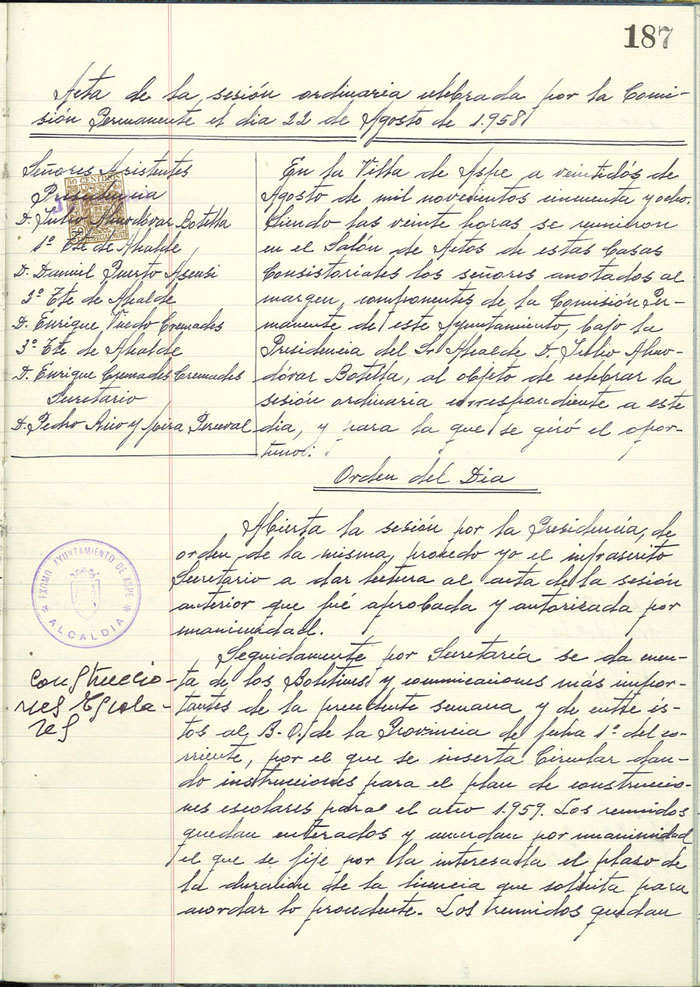 187
Acta de la sesión ordinaria celebrada por la Comi-
sión Permanente el dia 22 de Agosto de 1.958
Señores Asistentes
Presidencia
D. Julio Almodóvar Botella
1º Tte de Alcalde
D. Daniel Puerto Asensi
2º Tte de Alcalde
D. Enrique Vuedo Cremades
3º Tte de Alcalde
D. Enrique Cremades Cremades
Secretario
D. Pedro Rico y Mira Perceval
50 CENTIMOS
En la Villa de Aspe a veintidós de
Agosto de mil novecientos cincuenta y ocho.
Siendo las veinte horas se reunieron
en el Salón de Actos de estas Casas
Consistoriales los señores anotados al
margen, componentes de la Comisión Per-
manente de este Ayuntamiento, bajo la
Presidencia del Sr. Alcalde D. Julio Almo-
dóvar Botella, al objeto de celebrar la
sesión ordinaria correspondiente a este
dia, y para la que se giró el opor-
tuno:
Orden del Dia
Abierta la sesión por la Presidencia, de
orden de la misma, procedo yo el infrascrito
Secretario a dar lectura al acta de la sesión
anterior que fué aprobada y autorizada por
unanimidad.
EXCMO. AYUNTAMIENTO DE ASPE
* ALCALDIA *
Construccio-
nes Escola-
res
Seguidamente por Secretaría se da cuen-
ta de los Boletines y comunicaciones más impor-
tantes de la precedente semana y de entre és-
tos al B. O. de la Provincia de fecha 1º del co-
rriente, por el que se inserta Circular dan-
do instrucciones para el plan de construccio-
nes escolares para el año 1.959. Los reunidos
quedan enterados y acuerdan por unanimidad
el que se fije por la interesada el plaso de
la duración de la licencia que solicita para
acordar lo procedente. Los reunidos quedan